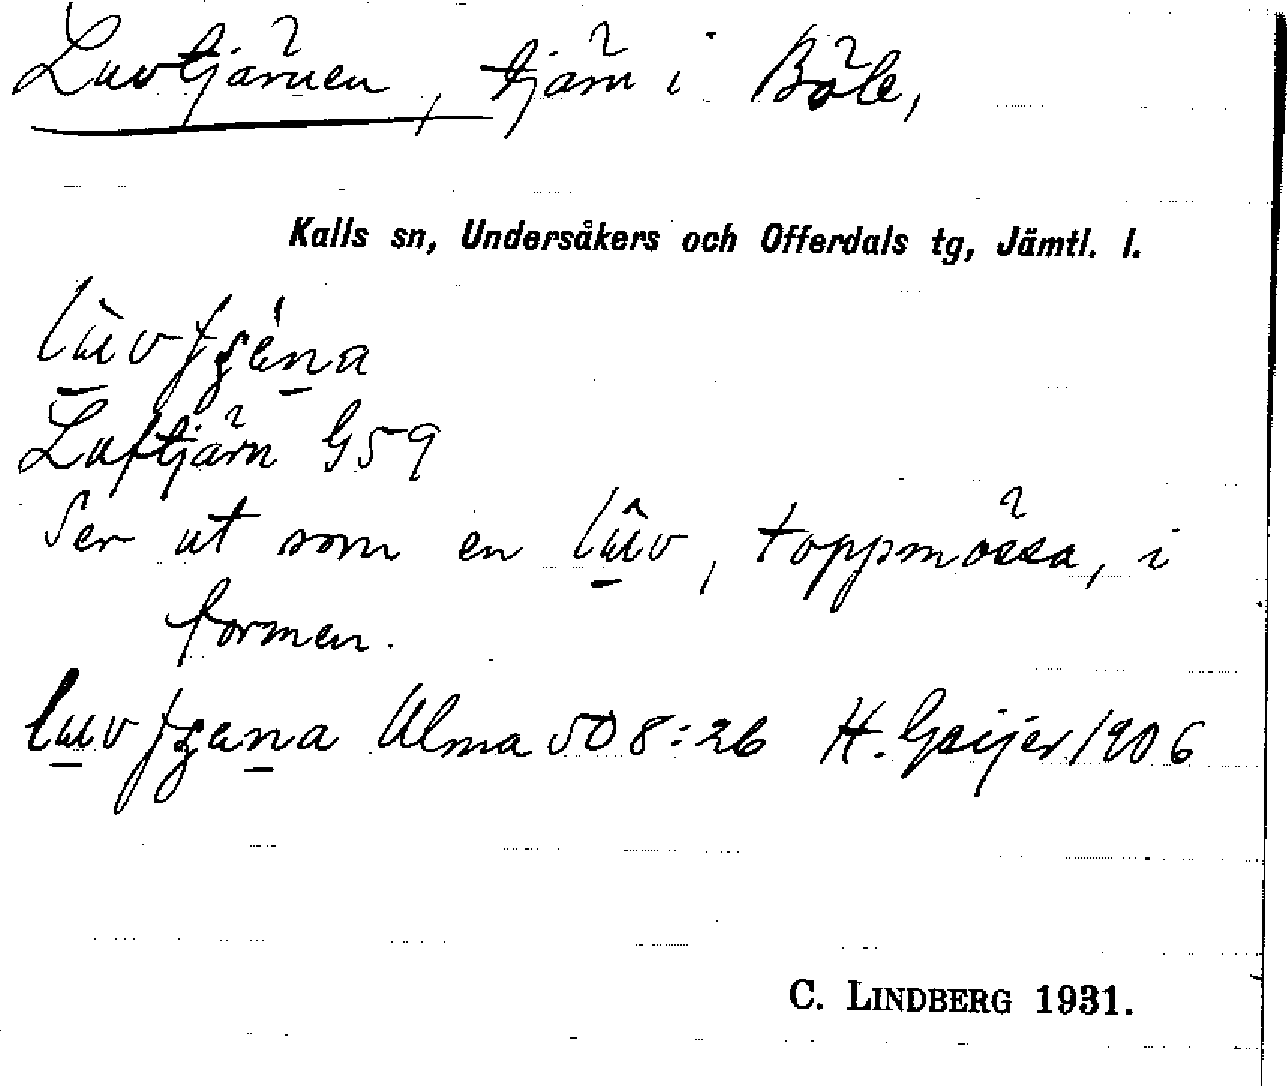 Luvtjärnen, tjärn i Böle,
Kalls sn, Undersåkers och Offerdals tg, Jämtl. l.
Luftjärn G59
Ser ut som en lûv, toppmössa, i
formen.
Ulma 508:26 H. Geijer 1906
C. LINDBERG 1931.